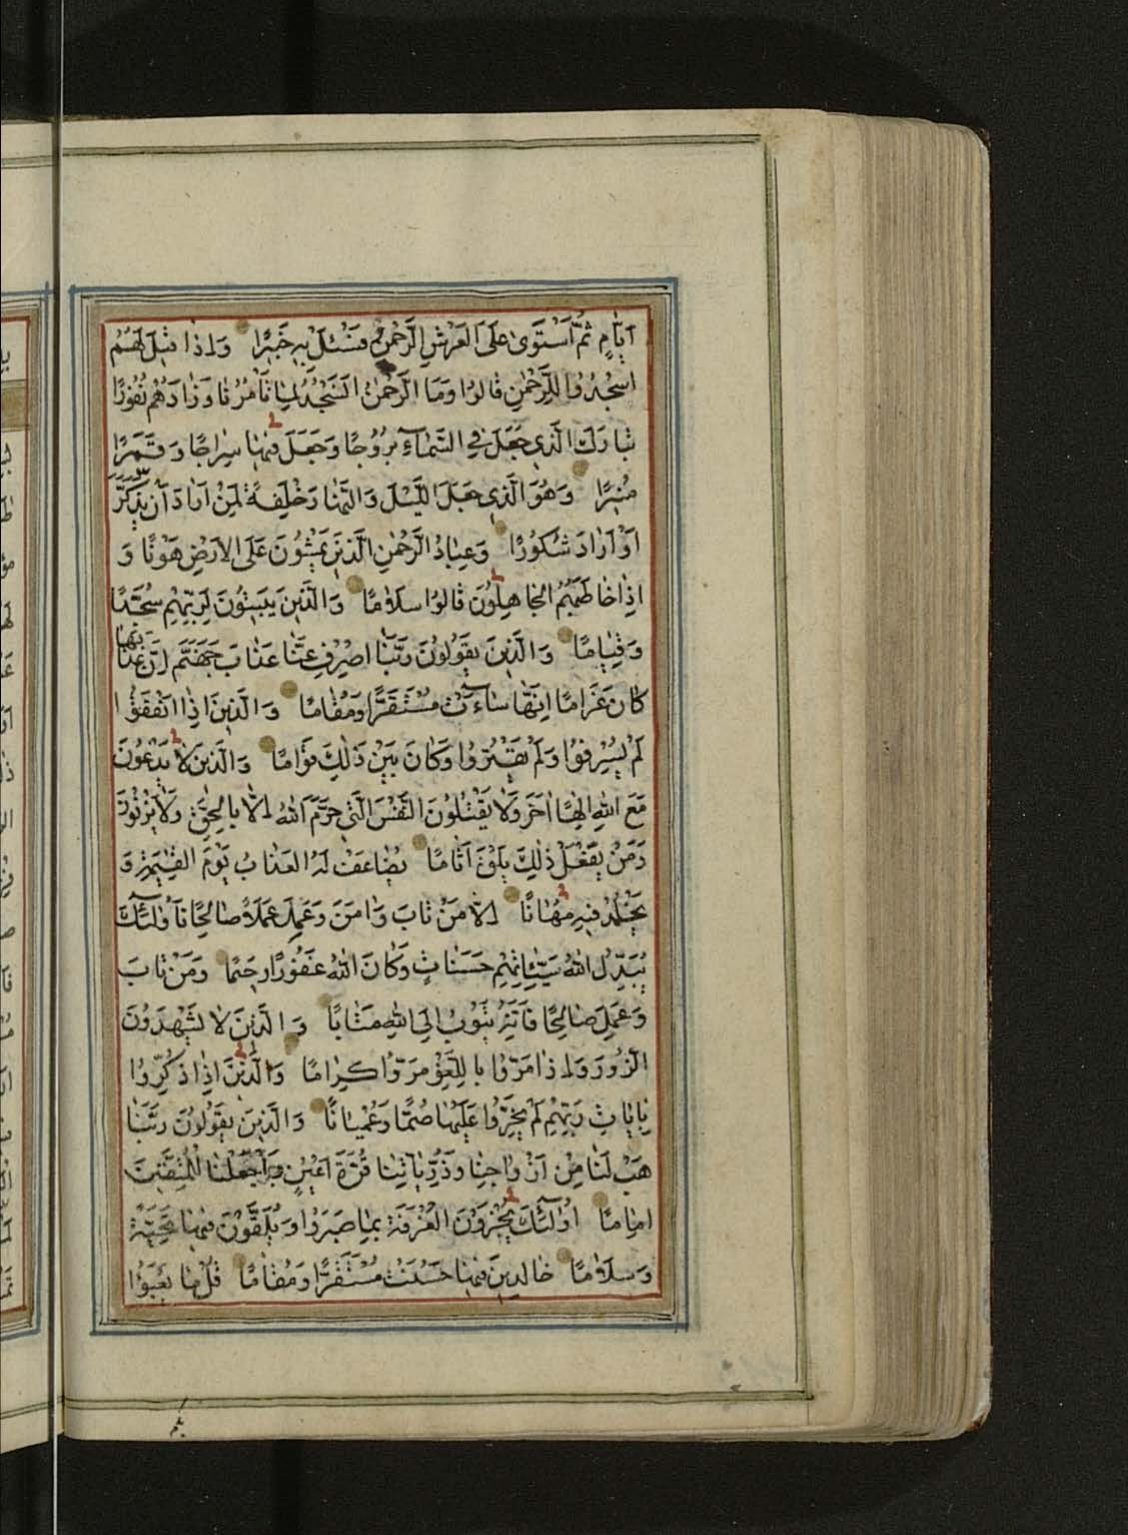 اَيّٰامٍ ثُمَّ اَسْتَوىٰ عَلَى الْعَرْشِ الرَّحْمٰنُ فَسْئَلْ بِهٖ خَبِيرًا وَاِذٰا قِيلَ لَهُمُ
اسْجُدُوا لِلرَّحْمٰنِ قٰالُوا وَمَا الرَّحْمٰنُ اَنَسْجُدُ لِمٰا تَأْمُرُنٰا وَزٰادَهُمْ نُفُورًا
تَبٰارَكَ الَّذِى جَعَلَ فِى السَّمٰآءِ بُرُوجًا وَجَعَلَ فِيهٰا سِرٰاجًا وَقَمَرًا
مُنِيرًا وَهُوَ الَّذِى جَعَلَ اللَّيْلَ وَالنَّهٰارَ خِلْفَةً لِمَنْ اَرٰادَ اَنْ يَذَّكَّرَ
اَوْ اَرٰادَ شُكُورًا وَعِبٰادُ الرَّحْمٰنِ الَّذِينَ يَمْشُونَ عَلَى الْاَرْضِ هَوْنًا وَ
اِذٰا خٰاطَبَهُمُ الْجٰاهِلُونَ قٰالُوا سَلٰامًا وَالَّذِينَ يَبِيتُونَ لِرَبِّهِمْ سُجَّدًا
وَقِيٰامًا وَالَّذِينَ يَقُولُونَ رَبَّنَا اصْرِفْ عَنّٰا عَذٰابَ جَهَنَّمَ اِنَّ عَذٰابَهٰا
كٰانَ غَرٰامًا اِنَّهٰا سٰآءَتْ مُسْتَقَرًّا وَمُقٰامًا وَالَّذِينَ اِذٰا اَنْفَقُوا
لَمْ يُسْرِفُوا وَلَمْ يَقْتُرُوا وَكٰانَ بَيْنَ ذٰلِكَ قَوٰامًا وَالَّذِينَ لٰا يَدْعُونَ
مَعَ اللّٰهِ اِلٰهًا اٰخَرَ وَلٰا يَقْتُلُونَ النَّفْسَ الَّتِى حَرَّمَ اللّٰهُ اِلّٰا بِالْحَقِّ وَلٰا يَزْنُونَ
وَمَنْ يَفْعَلْ ذٰلِكَ يَلْقَ اَثٰامًا يُضٰاعَفْ لَهُ الْعَذٰابُ يَوْمَ الْقِيٰمَةِ وَ
يَخْلُدْ فِيهِ مُهٰانًا اِلّٰا مَنْ تٰابَ وَاٰمَنَ وَعَمِلَ عَمَلًا صٰالِحًا فَاُولٰئِكَ
يُبَدِّلُ اللّٰهُ سَيِّئٰاتِهِمْ حَسَنٰاتٍ وَكٰانَ اللّٰهُ غَفُورًا رَحِيمًا وَمَنْ تٰابَ
وَعَمِلَ صٰالِحًا فَاِنَّهُ يَتُوبُ اِلَى اللّٰهِ مَتٰابًا وَالَّذِينَ لٰا يَشْهَدُونَ
الزُّورَ وَاِذٰا مَرُّوا بِاللَّغْوِ مَرُّوا كِرٰامًا وَالَّذِينَ اِذٰا ذُكِّرُوا
بِاٰيٰاتِ رَبِّهِمْ لَمْ يَخِرُّوا عَلَيْهٰا صُمًّا وَعُمْيٰانًا وَالَّذِينَ يَقُولُونَ رَبَّنٰا
هَبْ لَنٰا مِنْ اَزْوٰاجِنٰا وَذُرِّيّٰاتِنٰا قُرَّةَ اَعْيُنٍ وَاجْعَلْنٰا لِلْمُتَّقِينَ
اِمٰامًا اُولٰئِكَ يُجْزَوْنَ الْغُرْفَةَ بِمٰا صَبَرُوا وَيُلَقَّوْنَ فِيهٰا تَحِيَّةً
وَسَلٰامًا خٰالِدِينَ فِيهٰا حَسُنَتْ مُسْتَقَرًّا وَمُقٰامًا قُلْ مٰا يَعْبَؤُا